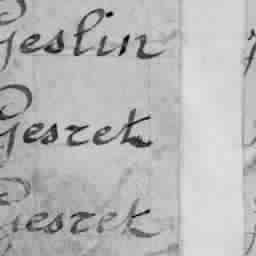 Geslin
Gesret
Gesret